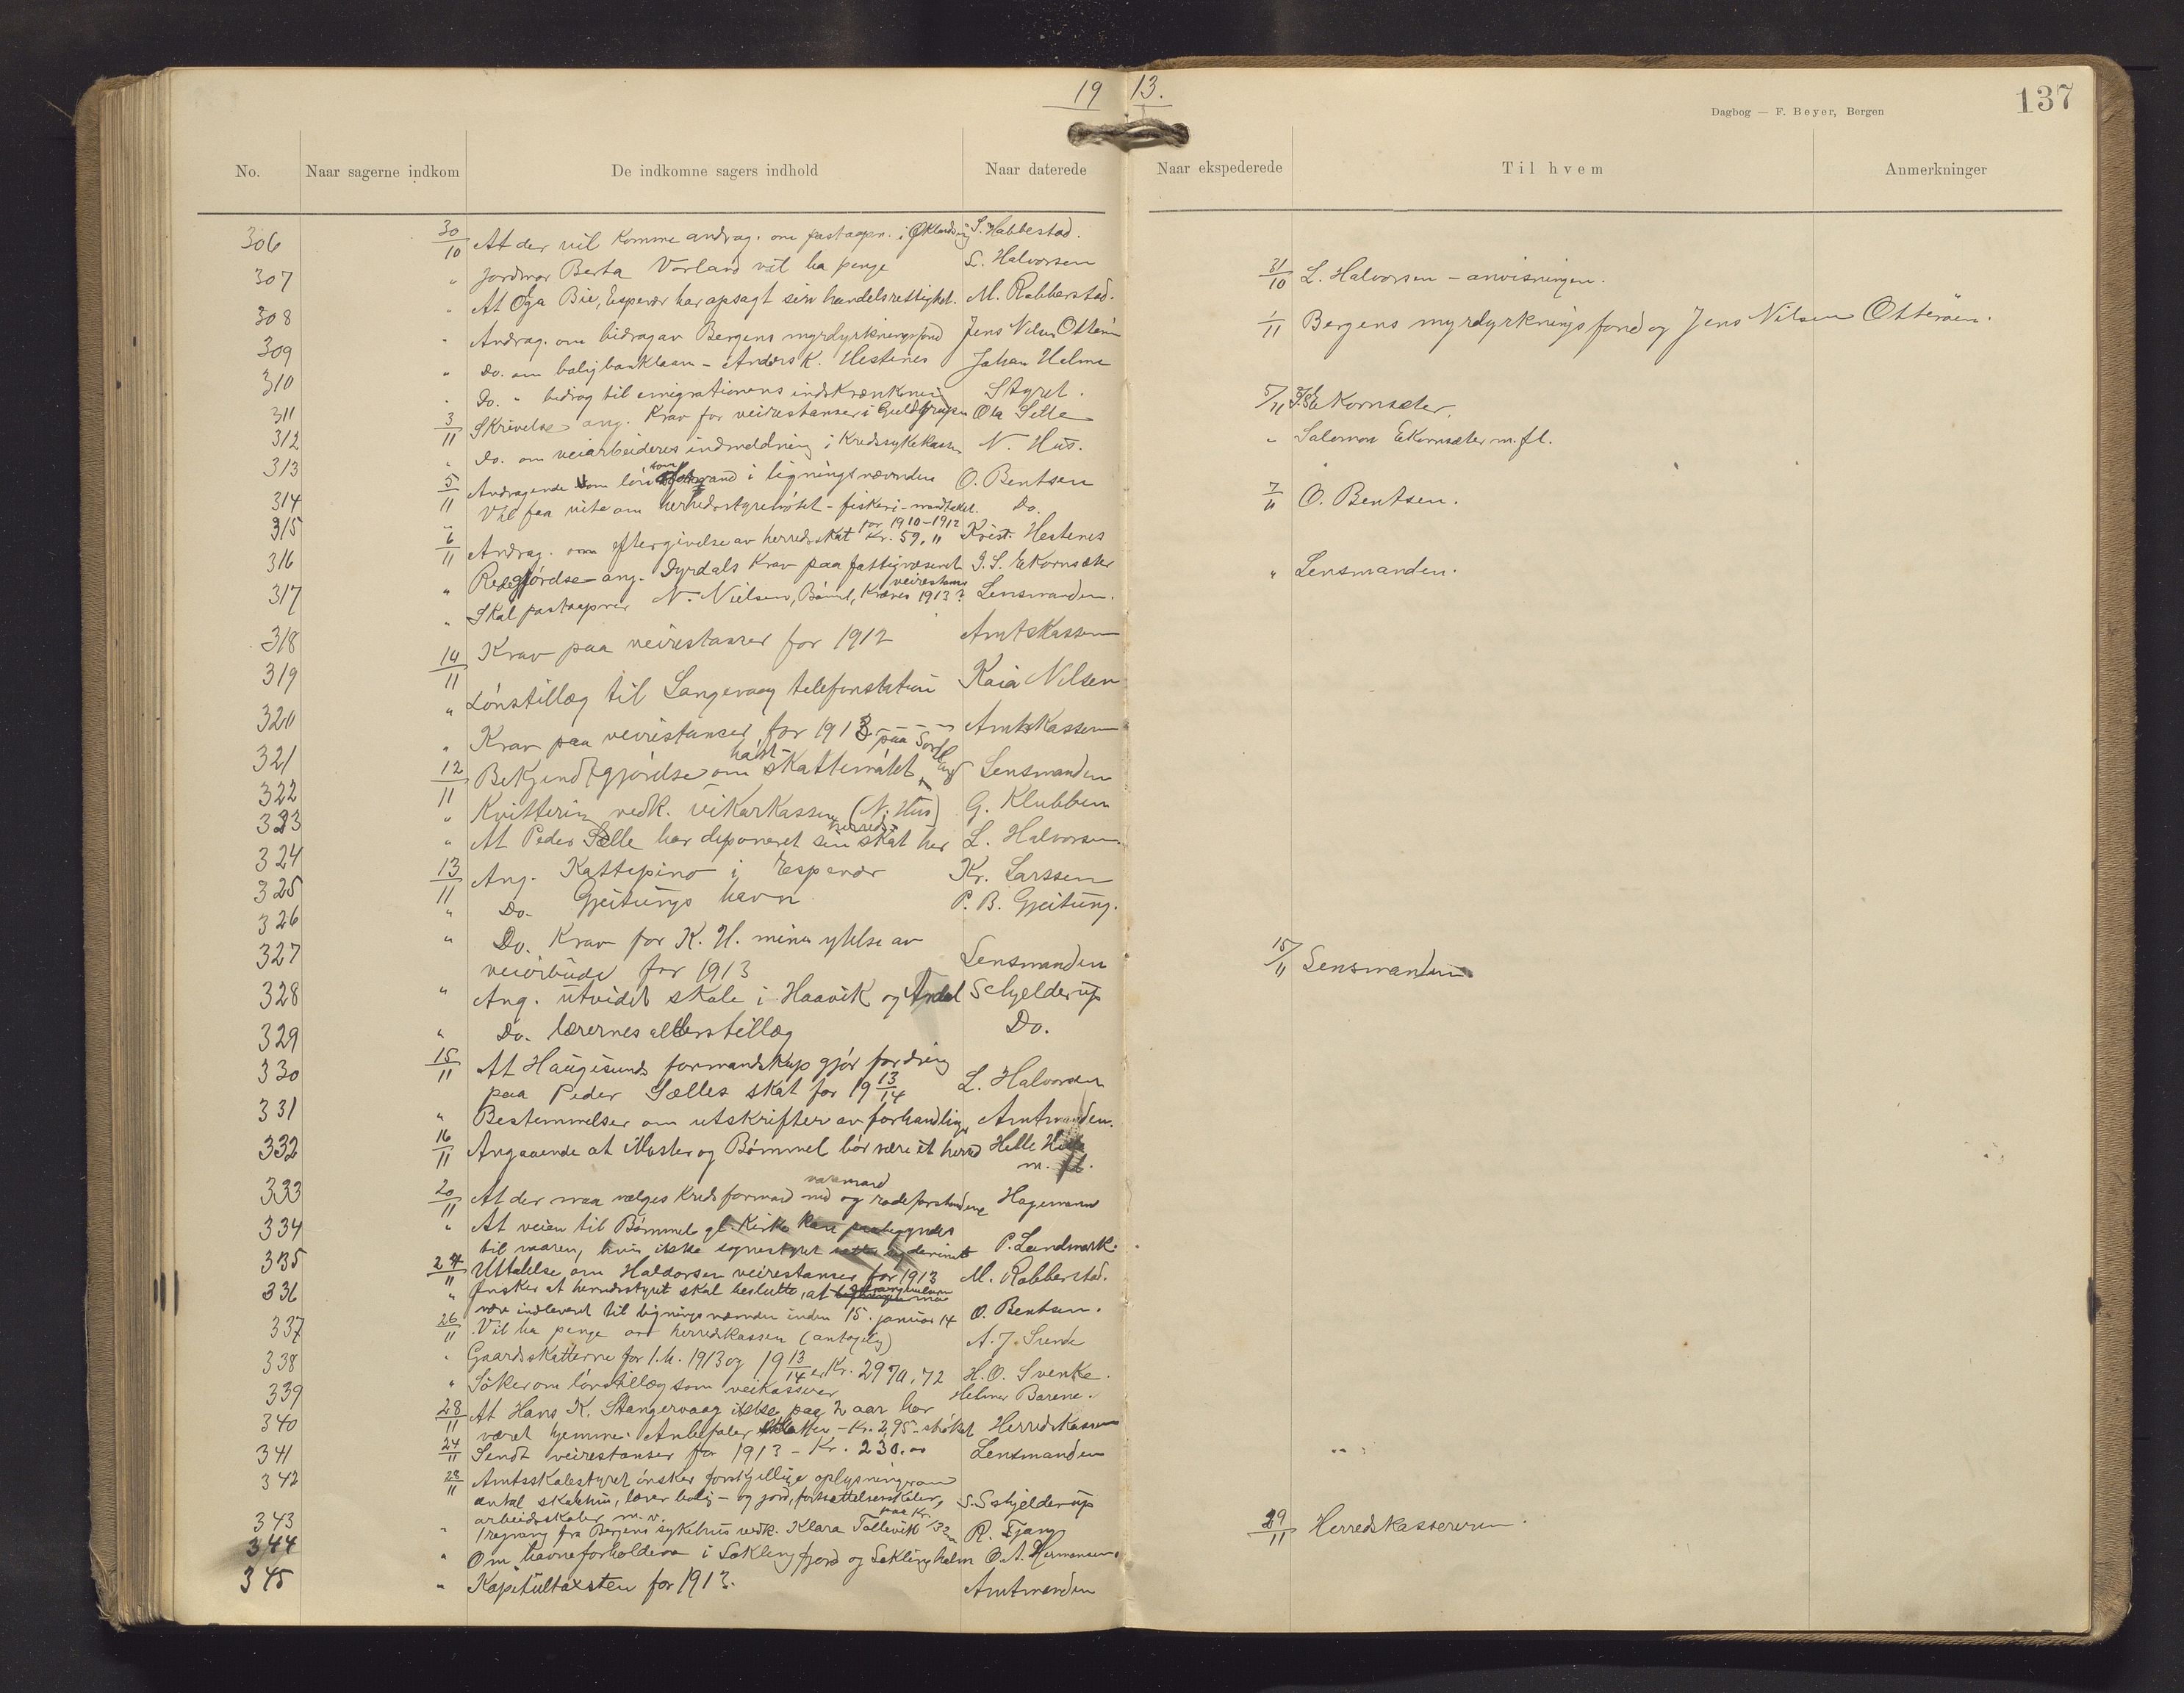 19 13.
137
Dagbog — F. Beyer, Bergen
No. Naar sagerne indkom De indkomne sagers indhold Naar daterede Naar ekspederede Til hvem Anmerkninger
306 30/10 At der vil komme andrag. om postaapn. i S. Habbestad.
307 " Jordmor Berta Vorland vil ha penge L. Halvorsen 31/10 L. Halvorsen - anvisningen.
308 " At Oga Bie, Espevær har opsagt sin handelsrettighet. M. Robberstad.
309 " Andrag. om bidrag av Bergens myrdyrkningsfond Jens Nilsen Otterøen 1/11 Bergens myrdyrkningsfond og Jens Nilsen Otteröen.
310 " Do. om boligbanklaan - Anders K. Hestenes Johan Helme
311 " Do. " bidrag til emigrationens indskrænkning Styret. 5/11 Ekornsæter.
312 3/11 Skrivelse ang. Krav for veirestanser i Ola Selle " Salomon Ekornsæter m. fl.
313 " Do. om veiarbeideres indmeldning i Kredssykekassen N. Hus.
314 5/11 Andragende om løn som i ligningsnævnden O. Bentsen 7/11 O. Bentsen.
315 " Vil faa vite om herredsstyremøtet - fiskeri- Do.
316 6/11 Andrag. om eftergivelse av herredsskat for 1910-1912 Kr. 59," Krist. Hestenes
317 " Redegjørdse ang. Dyrdals Krav paa fattigvæsenet J. S. Ekornsæter " Lensmanden.
" Skal postaapner N. Nielsen, Bømml, Kræves veirestans 1913? Lensmanden.
318 14/11 Krav paa veirestanser for 1912 Amtskassen
319 " Lønstillæg til Langevaag telefonstation Kaia Nilsen
320 " Krav paa veirestanser for 1913 Amtskassen
321 12/11 Bekjendtgjørelse om høst-skattemøtet paa Lensmanden
322 " Kvittering vedk. vikarkassen (N. Hus) G. Klubben
323 " At Peder Sælle har deponeret sin herredsskat her L. Halvorsen
324 13/11 Ang. Kattepino i Espevær Kr. Larssen
325 " Do. Gjeitungs havn P. B. Gjeitung.
326 " Do. Krav for K. H. minus ytelse av
327 veiarbeide for 1913 Lensmanden 15/11 Lensmanden
328 " Ang. utvidet skole i Haavik og Ardal Schjelderup
329 " Do. lærernes alderstillæg Do.
330 15/11 At Haugesunds formandskap gjør fordring
paa Peder Sælles skat for 19 13/14 L. Halvorsen
331 " Bestemmelser om utskrifter av forhandlinger Amtmanden.
332 16/11 Angaaende at Moster og Bømmel bør være et herred Helle
m. fl.
333 20/11 At der maa vælges Kredsformand varamand og rodeforstandere Hagemann
334 " At veien til Bømmels gl. Kirke kan paabegyndes
til vaaren, hvis ikke sognestyret P. Landmark.
335 24/11 Uttalelse om Haldorsen veirestanser for 1913 M. Robberstad.
336 " Ønsker at herredsstyret skal beslutte, at
være indleveret til ligningsnævnden inden 15. januar 14 O. Bentsen.
337 26/11 Vil ha penge av herredskassen (antagelig) A. J. Sunde
338 " Gaardsskatterne for 1. h. 1913 og 19 13/14 er Kr. 2970,72 H. O. Svenke.
339 " Søker om lønstillæg som veikasserer Helmer Barene.
340 28/11 At Hans K. Stangervaag ikke paa 2 aar har
været hjemme. Anbefaler skatten - Kr. 2,95 - strøket Herredskassen
341 24/11 Sendt veirestanser for 1913 - Kr. 230.00 Lensmanden
342 28/11 Amtsskolestyret ønsker forskjellige oplysninger om
antal skolehus, lærerbolig- og jord, fortsættelsesskoler,
arbeidsskoler m. v. S. Schjelderup
343 " 1 regning fra Bergens sykehus vedk. Klara Tollevik paa Kr. R. Fjang 29/11 Herredskassereren.
344 " Om havneforholdene i Søklingfjord og Søklingholm O. A. Hermansen.
345 " Kapitultaxsten for 1913. Amtmanden